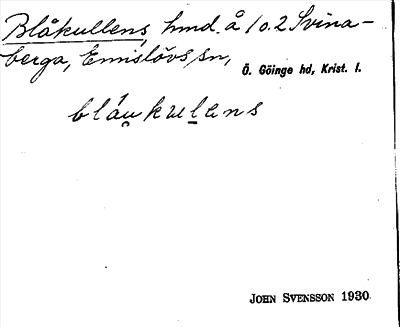 Blåkullens, hmd. å 1 o. 2 Svina-
berga, Emislövs sn,
Ö. Göinge hd, Krist. l.
bláu̯kulens
JOHN SVENSSON 1930.